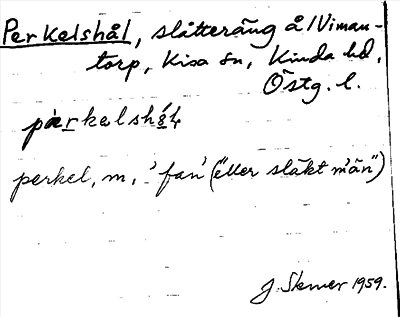 Perkelshål, slåtteräng å /Viman-
torp, Kisa sn, Kinda hd,
Östg. l.
pærkelshå̱ɫ
perkel, m, 'fan' ("eller släkt m'än")
J. Skener 1959.